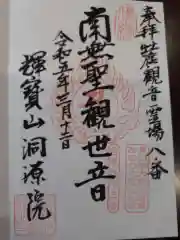 奉拝 准観音霊場八番
南無聖観世音
令和五年三月十二日
輝寶山洞源院